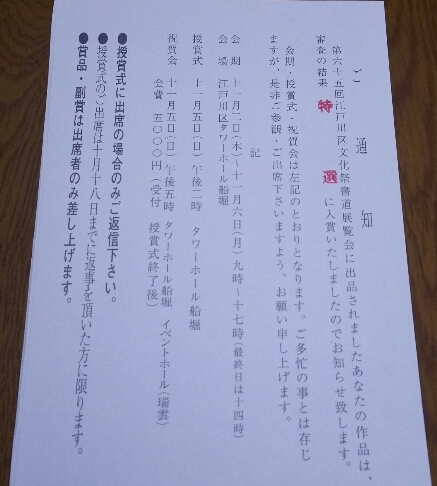 ご通知
第六十五回江戸川区文化祭書道展覧会に出品されましたあなたの作品は、
審査の結果 特選 に入賞いたしましたのでお知らせ致します。
会期・授賞式・祝賀会は左記のとおりとなります。ご多忙の事とは存じ
ますが、是非ご参観・ご出席下さいますよう、お願い申し上げます。
記
会期 十一月二日(木)~十一月六日(月)九時~十七時(最終日は十四時)
会場 江戸川区タワーホール船堀
授賞式 十一月五日(日)午後二時 タワーホール船堀
祝賀会 十一月五日(日)午後五時 タワーホール船堀 イベントホール(瑞雲)
会費 五〇〇〇円(受付 授賞式終了後)
●授賞式に出席の場合のみご返信下さい。
●授賞式のご出席は十月十八日までに返事を頂いた方に限ります。
●賞品・副賞は出席者のみ差し上げます。